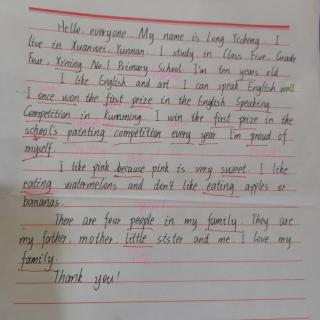 Hello, everyone. My name is Long Yicheng. I
live in Xuanwei, Yunnan. I study in Class Five, Grade
Four, Xining No.1 Primary School. I'm ten years old.
I like English and art. I can speak English well.
I once won the first prize in the English Speaking
Competition in Kunming. I win the first prize in the
school's painting competition every year. I'm proud of
myself.
I like pink because pink is very sweet. I like
eating watermelons and don't like eating apples or
bananas.
There are four people in my family. They are
my father, mother, little sister and me. I love my
family.
Thank you!